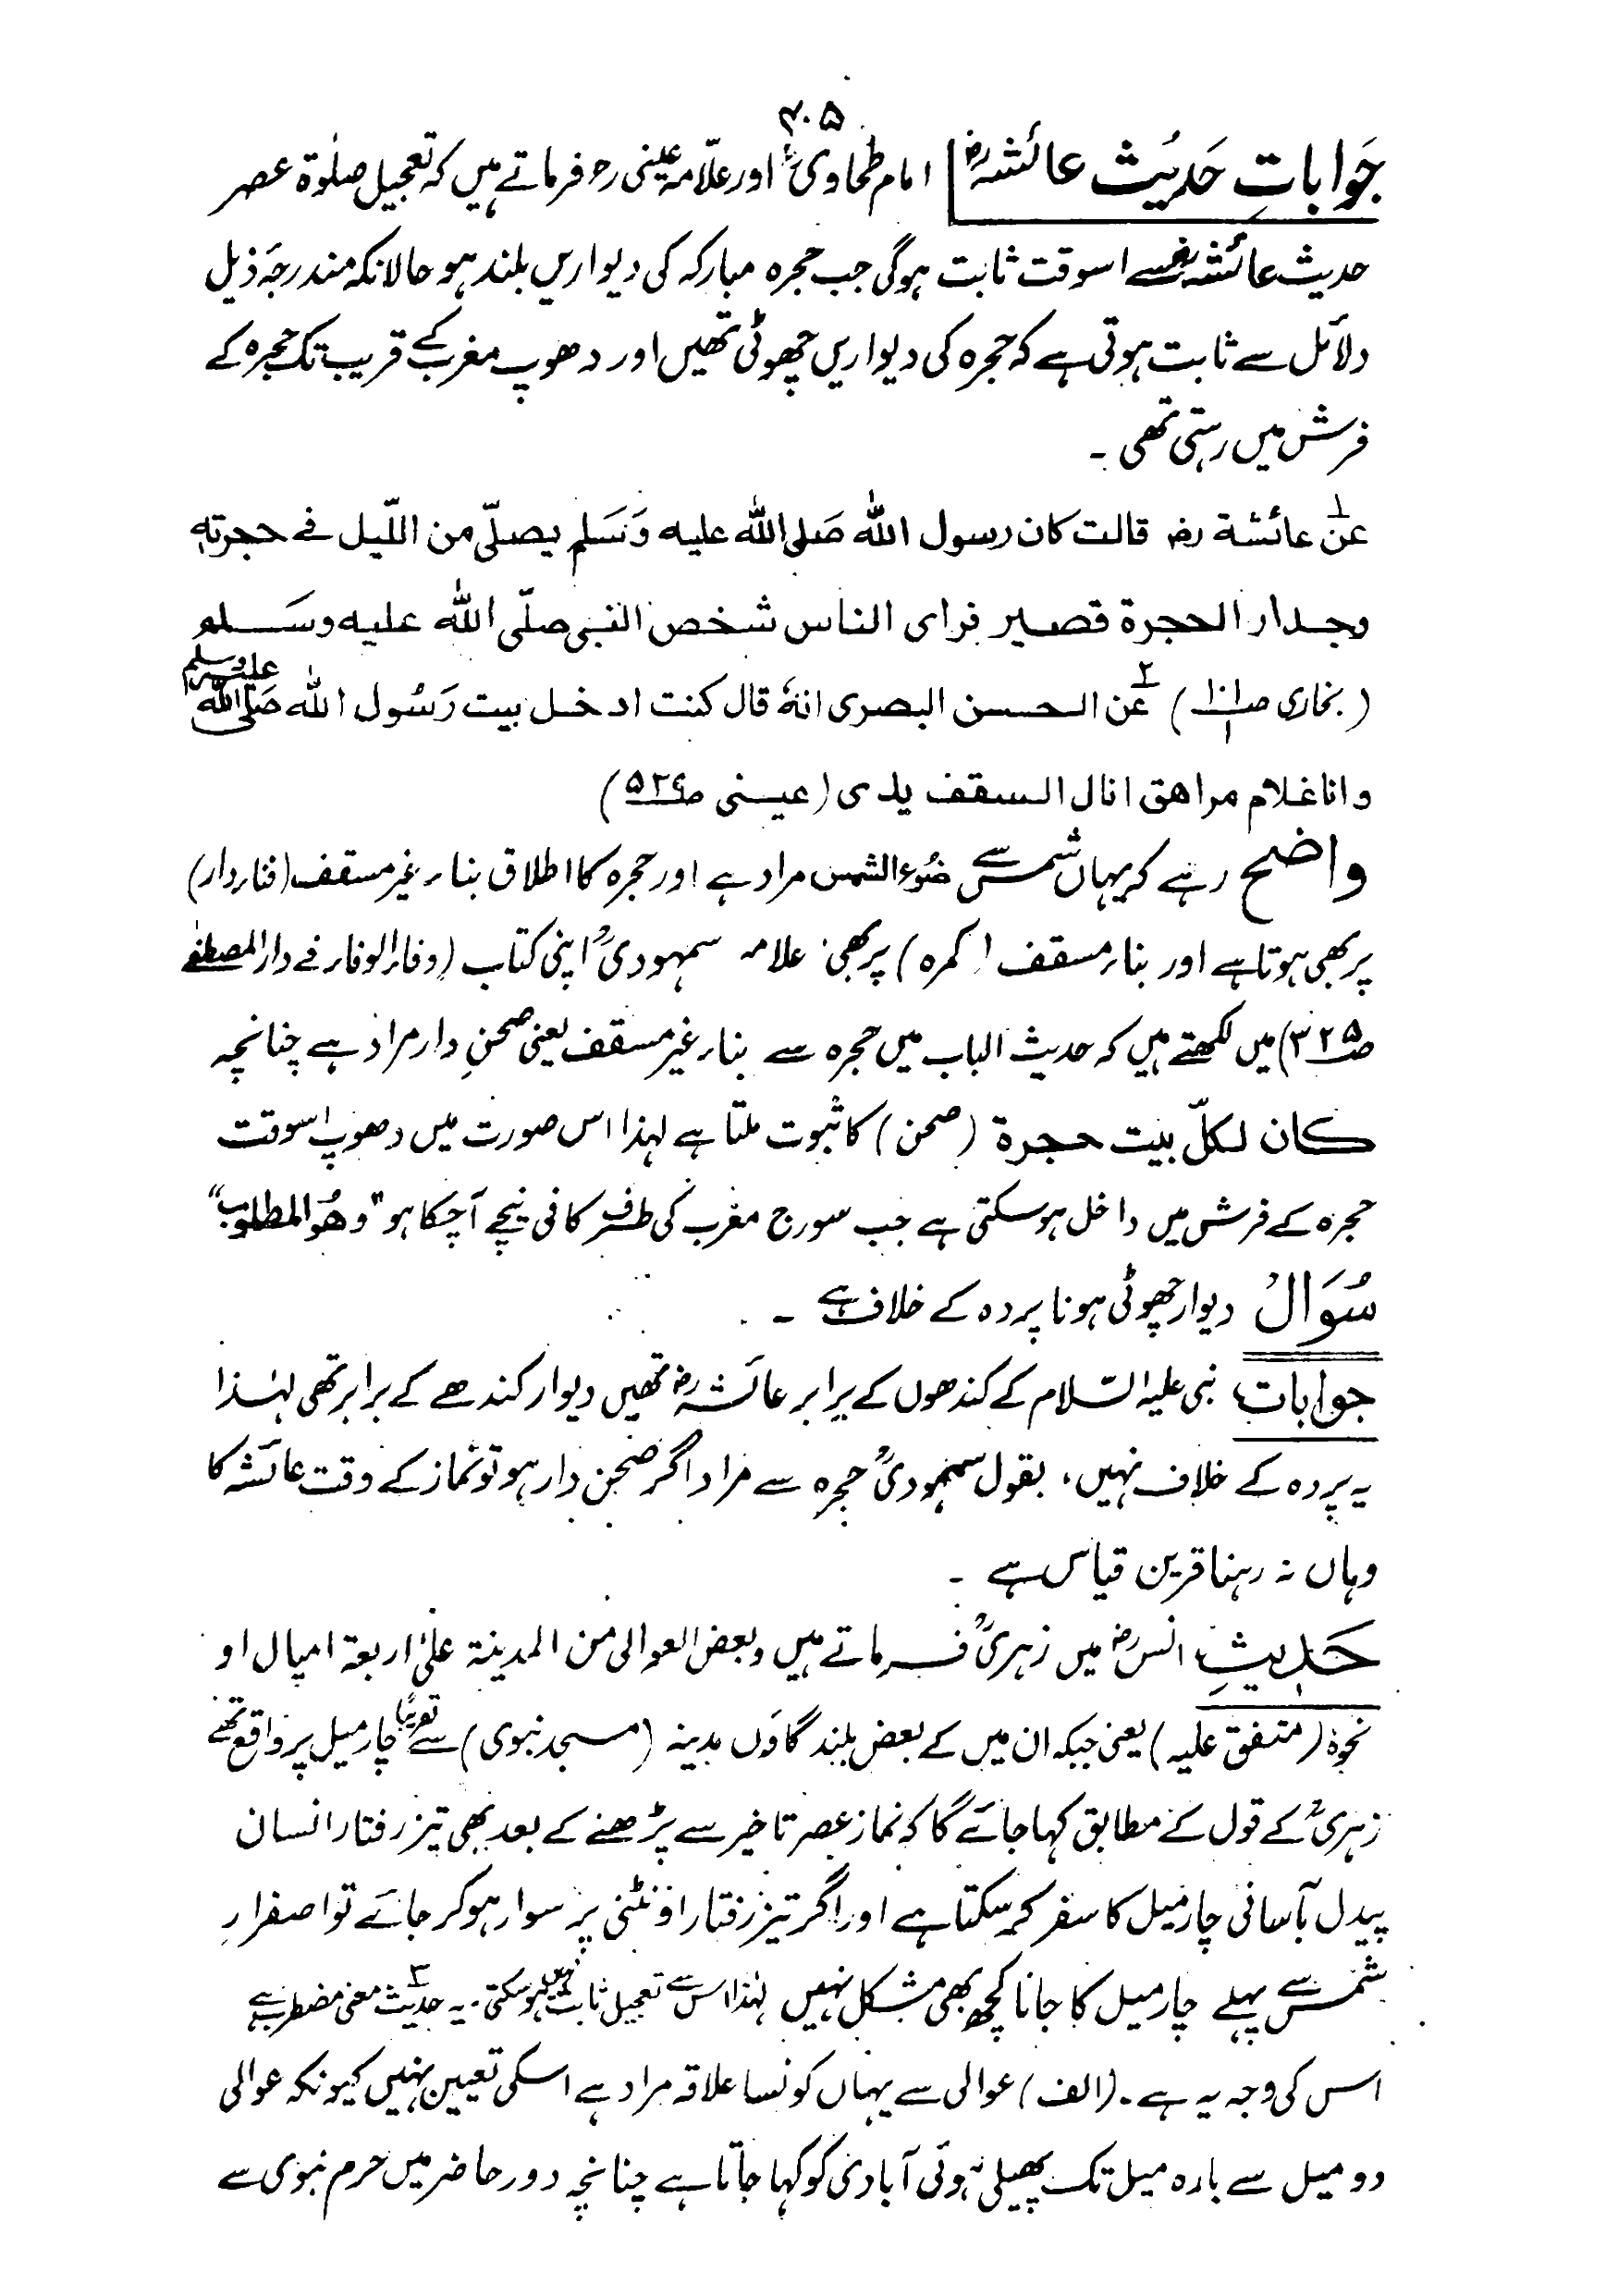 ۳۰۵
جَوَاباتِ حَدِیْث عائشہؓ امام طحاویؒ اور علّامہ عینی رح فرماتے ہیں کہ تعجیل صلوٰۃ عصر
حدیث عائشہؓ سے اسوقت ثابت ہوگی جب حجرہ مبارکہ کی دیواریں بلند ہو حالانکہ مندرجۂ ذیل
دلائل سے ثابت ہوتی ہے کہ حجرہ کی دیواریں چھوٹی تھیں اور دھوپ مغرب کے قریب تک حجرہ کے
فرش میں رہتی تھی ۔
۱؎ عن عائشة رض قالت کان رسول الله صَلی الله علیه وَسَلم یصلّی من اللّیل فے حجرته
وجدار الحجرة قصیر فرای الناس شخص النبی صلّی الله علیه وسَلم
(بخاری ص۱۰۱/۱) ۲؎ عَن الحسن البصری انهٗ قال کنت ادخل بیت رَسُول الله صَلّی الله علیه وسلم
وانا غلام مراهق انال السقف یدی (عینی ص۵۳۶)
واضح رہے کہ یہاں شمس سے ضوء الشمس مراد ہے اور حجرہ کا اطلاق بناء غیر مسقف (فناء دار)
پر بھی ہوتا ہے اور بناء مسقف (کمرہ) پر بھی، علامہ سمہودیؒ اپنی کتاب (وفاء الوفاء فے دار المصطفےٰ
ص۳۲۵) میں لکھتے ہیں کہ حدیث الباب میں حجرہ سے بناء غیر مسقف یعنی صحنِ دار مراد ہے چنانچہ
کان لکلّ بیت حجرة (صحن) کا ثبوت ملتا ہے لہذا اس صورت میں دھوپ اسوقت
حجرہ کے فرش میں داخل ہوسکتی ہے جب سورج مغرب کی طرف کافی نیچے آچکا ہو "وھُوَ المطلوب"
سُوَالْ دیوار چھوٹی ہونا پردہ کے خلاف ہے ۔
جوابات نبی علیہ السّلام کے کندھوں کے برابر عائشہ رض تھیں دیوار کندھے کے برابر تھی لہٰذا
یہ پردہ کے خلاف نہیں، بقول سمہودیؒ حجرہ سے مراد اگر صحنِ دار ہو تو نماز کے وقت عائشہ کا
وہاں نہ رہنا قرین قیاس ہے ۔
حَدِیثِ انس رض میں زہریؒ فرماتے ہیں وبعض العوالی من المدینة علیٰ اربعة امیال او
نحوہٗ (متفق علیہ) یعنی جبکہ ان میں کے بعض بلند گاؤں مدینہ (مسجد نبوی) سے تقریباً چار میل پر واقع تھے
زہریؒ کے قول کے مطابق کہا جائے گا کہ نماز عصر تاخیر سے پڑھنے کے بعد بھی تیز رفتار انسان
پیدل بآسانی چار میل کا سفر کرسکتا ہے اور اگر تیز رفتار اونٹنی پر سوار ہوکر جائے تو اصفرارِ
شمس سے پہلے چار میل کا جانا کچھ بھی مشکل نہیں لہٰذا اس سے تعجیل ثابت نہیں ہوسکتی ۔ ۲؎ یہ حدیث معنی مضطرب ہے
اس کی وجہ یہ ہے ۔ (الف) عوالی سے یہاں کونسا علاقہ مراد ہے اسکی تعیین نہیں کیونکہ عوالی
دو میل سے بارہ میل تک پھیلی ہوئی آبادی کو کہا جاتا ہے چنانچہ دور حاضر میں حرم نبوی سے